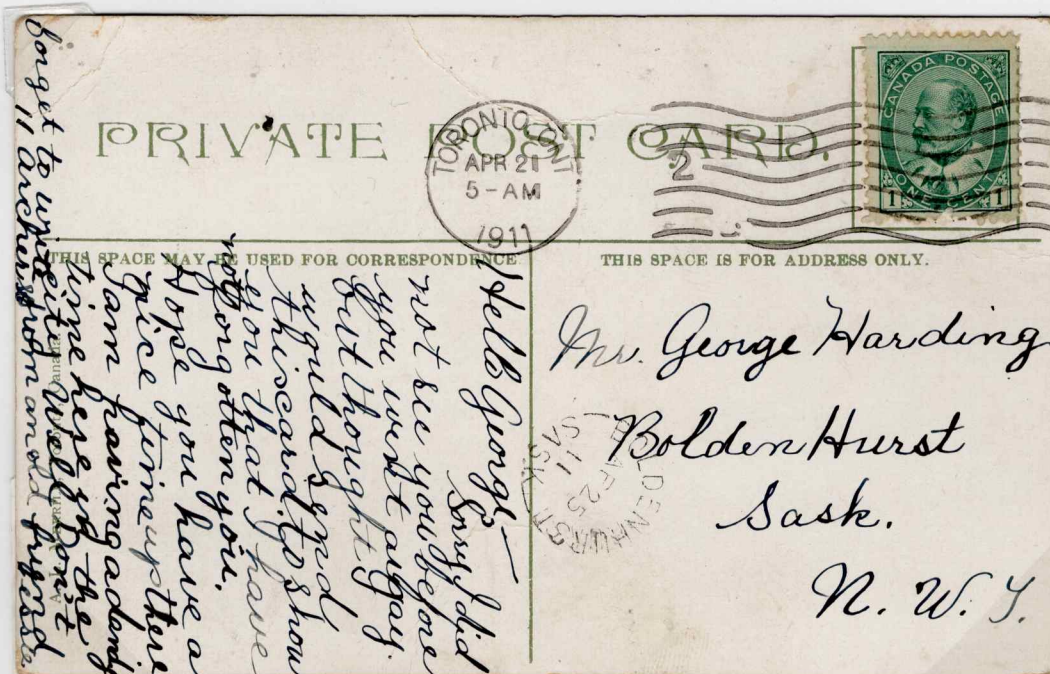 PRIVATE POST CARD.
TORONTO, ONT
APR 21
5-AM
1911
2
CANADA POSTAGE
1 ONE CENT 1
THIS SPACE MAY BE USED FOR CORRESPONDENCE
THIS SPACE IS FOR ADDRESS ONLY.
Hello George—
Sorry I did
not see you before
you went away.
but thought I
would send
this card to show
you that I have
not forgotten you.
Hope you have a
nice time up there
I am having a
time here in the
city Well Don't
forget to write
from an old friend
Mr. George Harding
Bolden Hurst
Sask.
N. W. T.
LDENHURST
AP 25
11
SASK